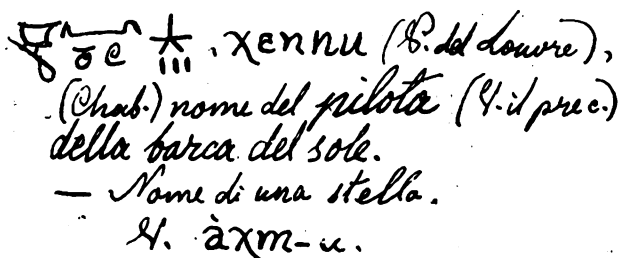 , χennu (P. del Louvre),
(Chab.) nome del pilota (V. il prec.)
della barca del sole.
— Nome di una stella.
V. àχm-u.